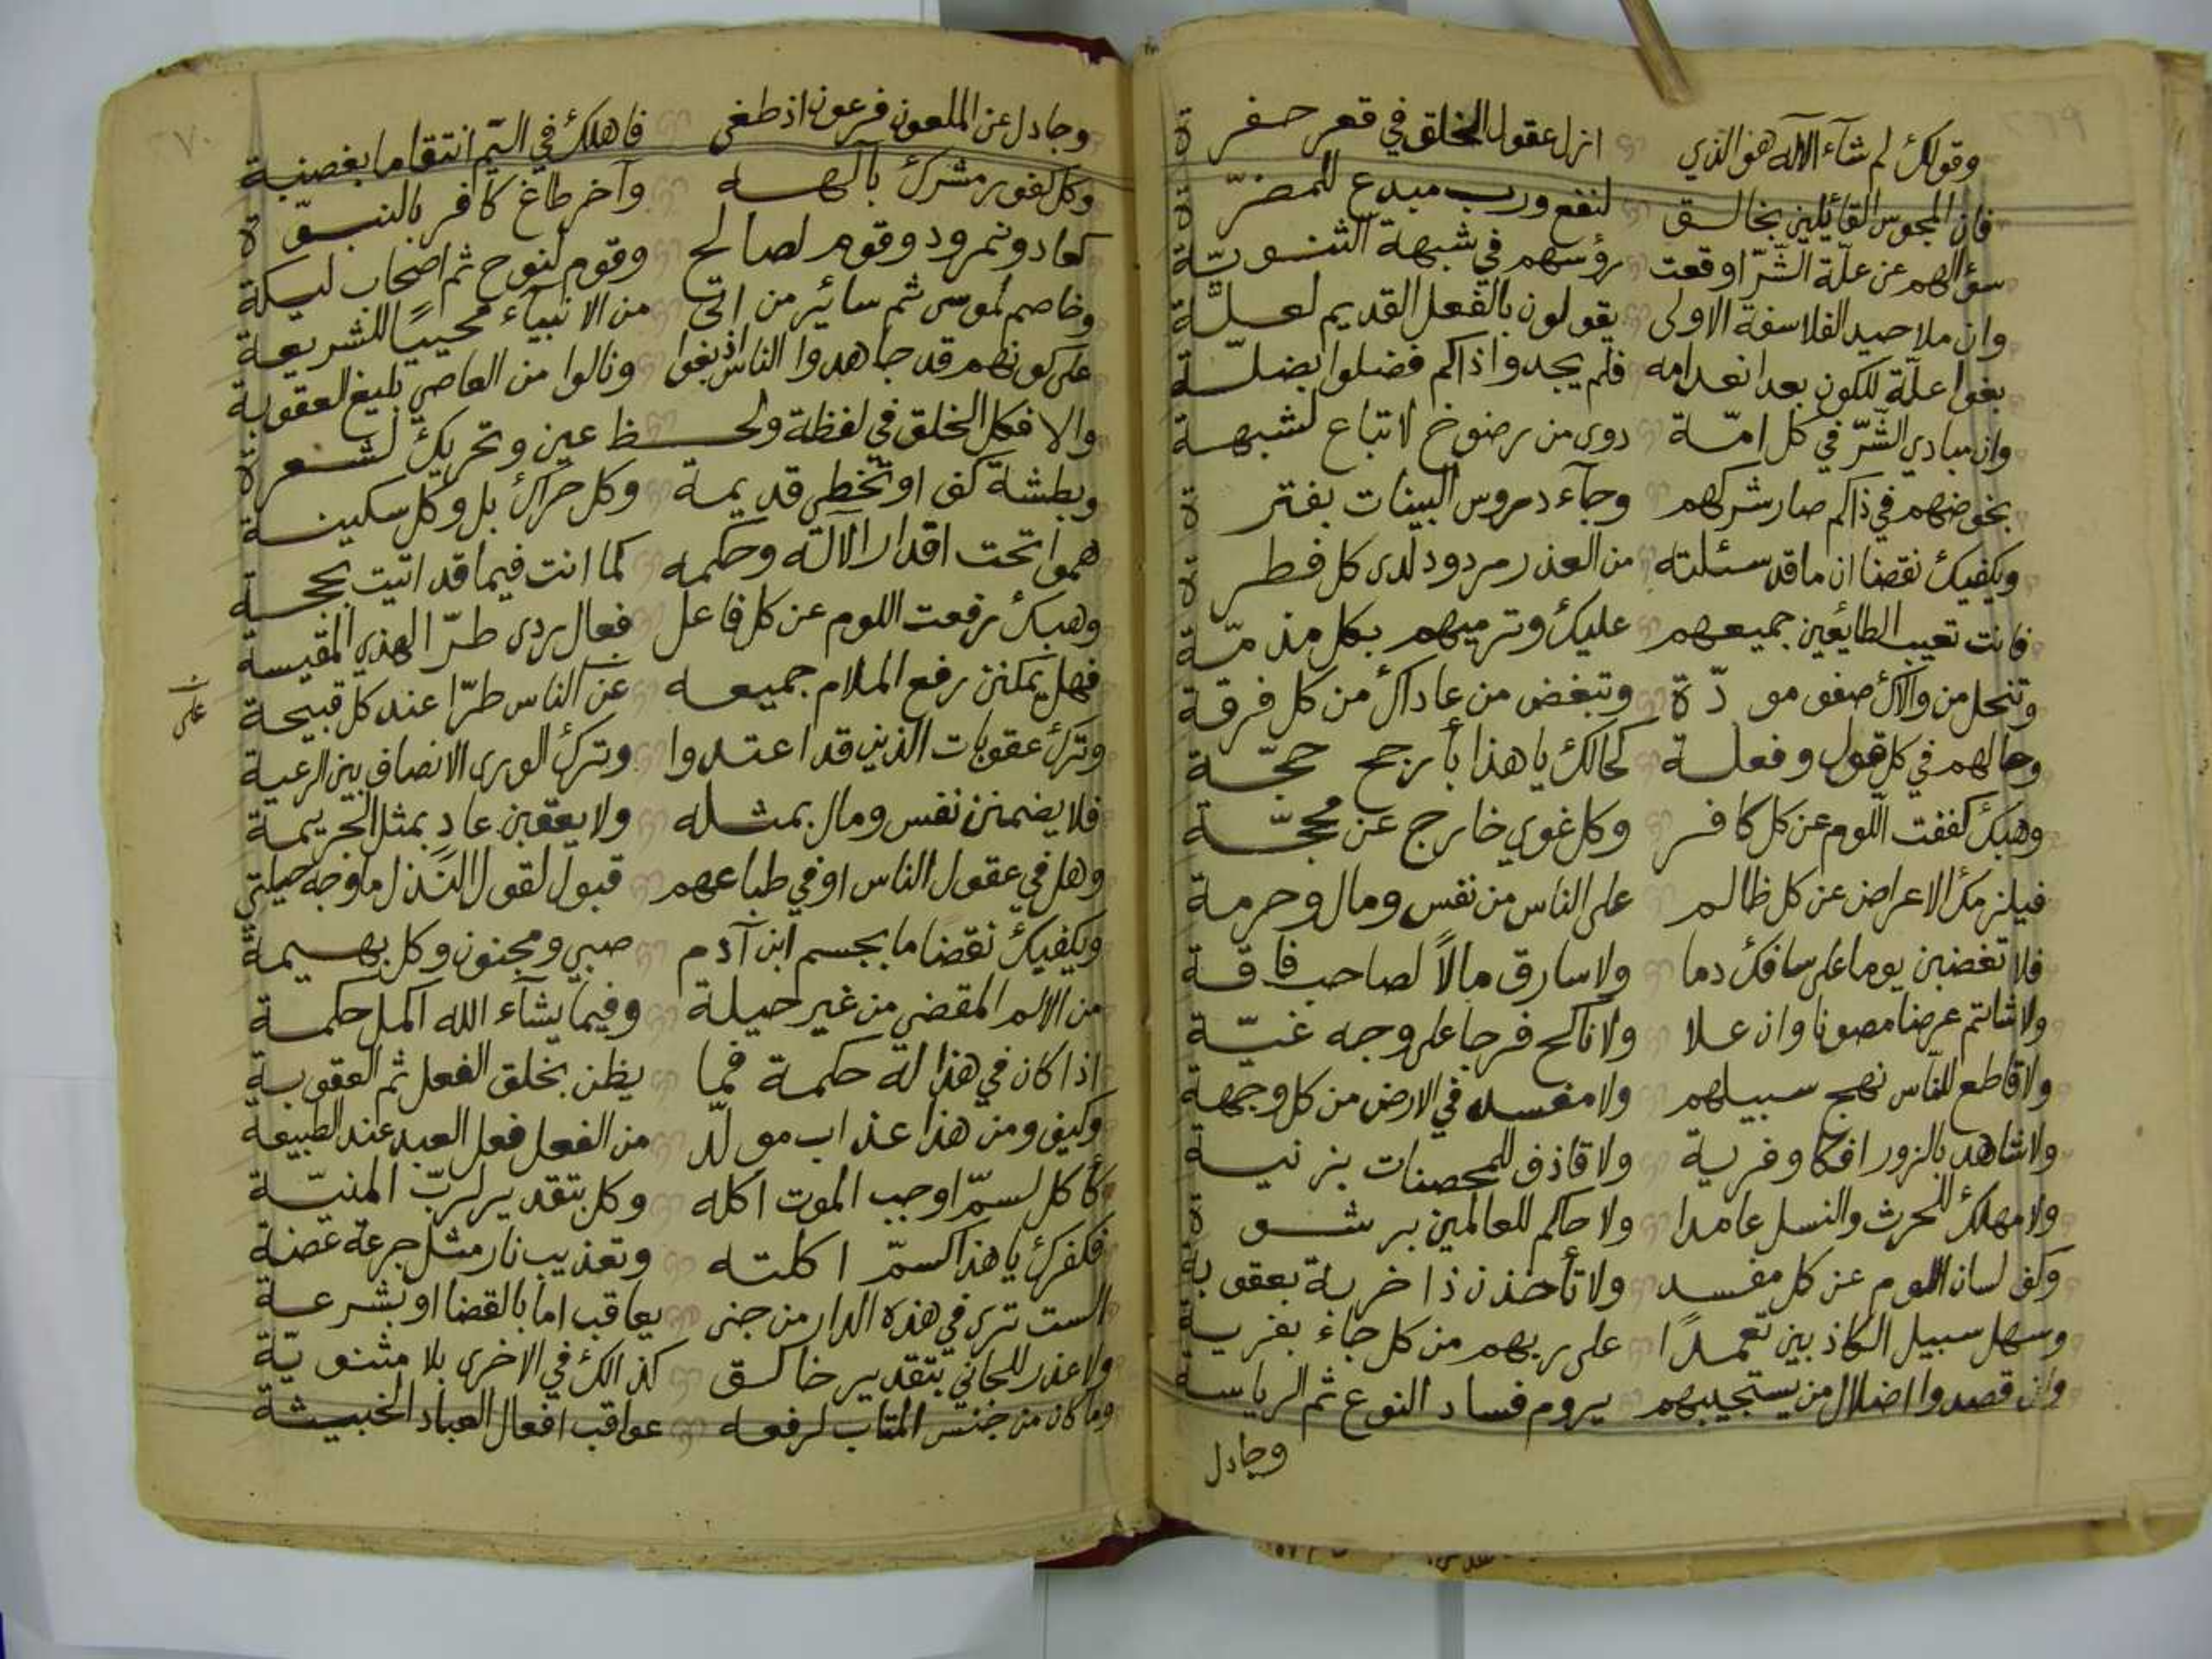 وقولك لم شآء الآله هو الذي ازل عقول الخلق في قعر حفرة
فان المجوس القائيلين بخالق لنفع ورب مبدع للمضرّة
سؤالهم عن علّة الشّرّ اوقعت رؤسهم في شبهة الثنويّة
وان ملاحيد الفلاسفة الاولى يقولون بالفعل القديم لعلّة
بغوا علّة للكون بعد انعدامه فلم يجدوا ذاكم فضلوا بضلّة
وان مبادي الشّرّ في كل امّة دوى من رضوخ لاتباع لشبهة
بخوضهم في ذاكم صار شركهم وجآء دروس البينات بفترة
ويكفيك نقضا ان ما قد سئلته من العذر مردود لدى كل فطرة
فانت تعيب الطايئعين جميعهم عليك وترميهم بكل مذمّة
وتنحل من والاك صفو مودّة وتبغض من عاداك من كل فرقة
وحالهم في كل قول وفعلة كحالك يا هذا بأرجح حجّة
وهبك كففت اللوم عن كل كافر وكل غوي خارج عن محجّة
فيلزمك الاعراض عن كل ظالم على الناس من نفس ومال وحرمة
فلا تغضبن يوما على سافك دما ولا سارق مالاً لصاحب فاقة
ولا شاتم عرضا مصونا وان علا ولا ناكح فرجا على وجه غيّة
ولا قاطع للناس نهج سبيلهم ولا مفسد في الارض من كل وجهة
ولا شاهد بالزور افكا وفرية ولا قاذف للمحصنات بزنية
ولا مهلك للحرث والنسل عامدا ولا حاكم للعالمين برشوة
وكف لسان اللوم عن كل مفسد ولا تأخذن ذا خربة بعقوبة
وسهل سبيل الكاذبين تعمدًا على ربهم من كل جاء بفرية
وان قصدوا اضلال من يستجيبهم يروم فساد النوع ثم الرياسة
وجادل
وجادل عن الملعون فرعون اذ طغى فاهلك في اليّم انتقاما بغضبة
وكل كفور مشرك بآلهه وآخر طاغ كافر بالنبوّة
كعاد ونمرود وقوم لصالح وقوم لنوح ثم اصحاب ليكة
وخاصم لموسى ثم سائير من اتى من الانبيآء محييًا للشريعة
على كونهم قد جاهدوا الناس اذ بغوا ونالوا من العاصي بليغ العقوبة
والا فكل الخلق في لفظة ولحظ عين وتحريك لشعرة
وبطشة كف او تخطي قديمة وكل حراك بل وكل سكينة
همو اتحت اقدار الآله وحكمه كما انت فيما قد اتيت بحجة
وهبك رفعت اللوم عن كل فاعل فعال ردى طرّا لهذي المقيسة
فهل يمكنن رفع الملام جميعه عن الناس طرّا عند كل قبيحة
على
وترك عقوبات الذين قد اعتدوا وترك الورى الانصاف بين الرعية
فلا يضمنن نفس ومال بمثله ولا يعقبن عادٍ بمثل الجريمة
وهل في عقول الناس او في طباعهم قبول لقول النّذل ما وجه حيلتي
ويكفيك نقضا ما بجسم ابن آدم صبي ومجنون وكل بهيمة
من الالم المقضي من غير حيلة وفيما يشآء الله اكمل حكمة
اذا كان في هذا له حكمة فما يظن بخلق الفعل ثم العقوبة
وكيف ومن هذا عذاب مولّد من الفعل فعل العبد عند الطبيعة
كأكل لسمّ اوجب الموت اكله وكل بتقدير لربّ المنيّة
فكفرك يا هذا كسمّ اكلته وتعذيب نار مثل جرعة غصة
الست ترى في هذه الدار من جنى يعاقب اما بالقضا او بشرعة
ولا عذر للجاني بتقدير خالق كذالك في الاخرى بلا مثنويّة
وما كان من جنس المتاب لرفعه عواقب افعال العباد الخبيثة